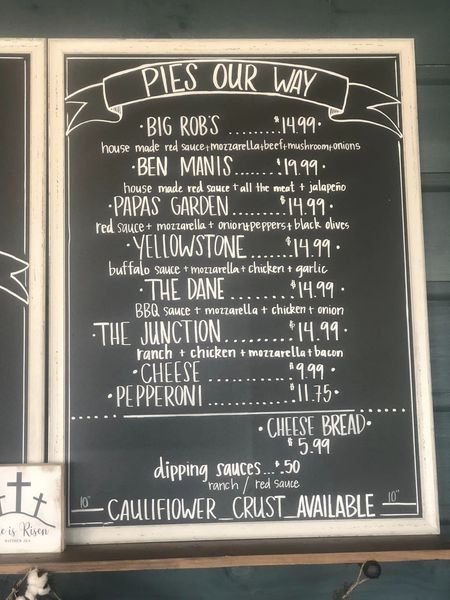 PIES OUR WAY
·BIG ROB'S ......... $14.99·
house made red sauce+mozzarella+beef+mushroom+onions
·BEN MANIS ....... $19.99·
house made red sauce + all the meat + jalapeño
·PAPAS GARDEN......... $14.99·
red sauce + mozzarella + onion+peppers+ black olives
·YELLOWSTONE ...... $14.99·
buffalo sauce + mozzarella + chicken + garlic
·THE DANE ......... $14.99·
BBQ sauce + mozzarella + chicken + onion
·THE JUNCTION ......... $14.99·
ranch + chicken + mozzarella + bacon
·CHEESE ............ $9.99·
·PEPPERONI ......... $11.75·
·CHEESE BREAD·
$5.99
dipping sauces...$.50
ranch / red sauce
10" CAULIFLOWER_CRUST_AVAILABLE 10"
e is Risen